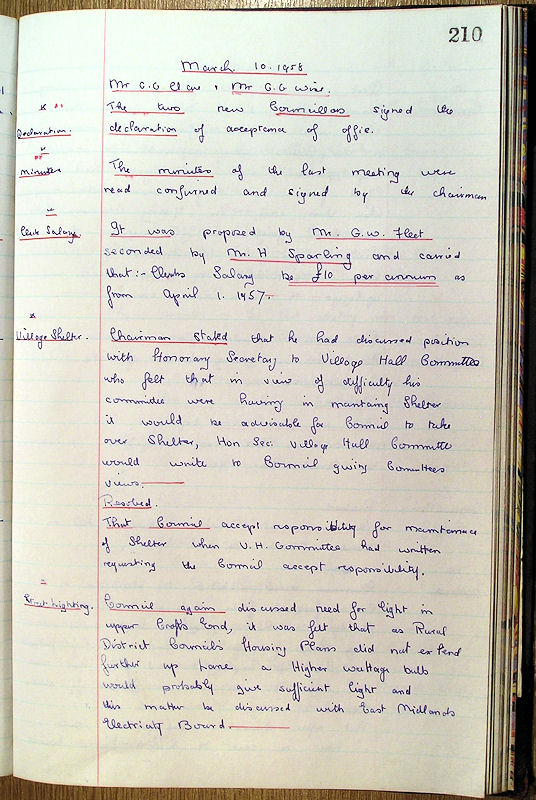 210
March 10. 1958
Mr C.G Clare & Mr G.G Wise.
Declaration.
The two new Councillors signed the
declaration of acceptance of offic.
Minutes
The minutes of the last meeting were
read confirmed and signed by the chairman
Clerk Salary
It was proposed by Mr. G.W. Fleet
seconded by Mr. H Sparling and carried
that:- Clerks Salary be £10 per annum as
from April 1. 1957.
Village Shelter.
Chairman stated that he had discussed position
with Honorary Secretary to Village Hall Committee
who felt that in view of difficulty his
committee were having in mantaing Shelter
it would be advisable for Council to take
over Shelter, Hon Sec: Village Hall Committe
would write to Council giving Committees
views.
Resolved.
That Council accept responsibility for maintenance
of Shelter when V.H. Committee had written
requesting the Council accept responsibility.
Street Lighting.
Council again discussed need for light in
upper Crofts End, it was felt that as Rural
District Council's Housing Plans did not extend
further up Lane a Higher wattage bulb
would probably give sufficient light and
this matter be discussed with East Midlands
Electricity Board.